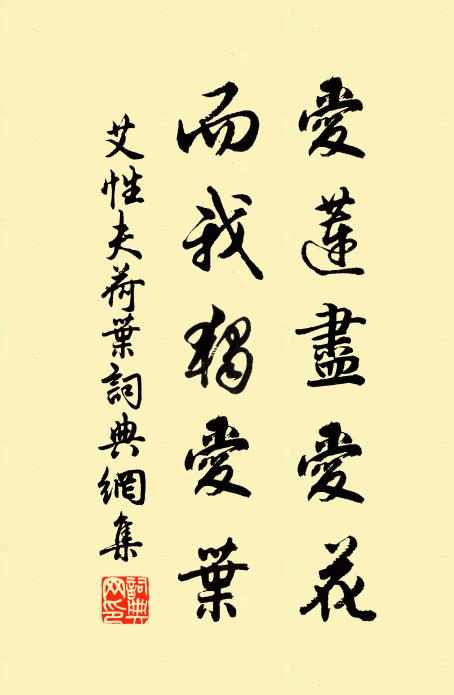 愛蓮盡愛花
而我獨愛葉
艾性夫荷葉詞典網集
詞典網印